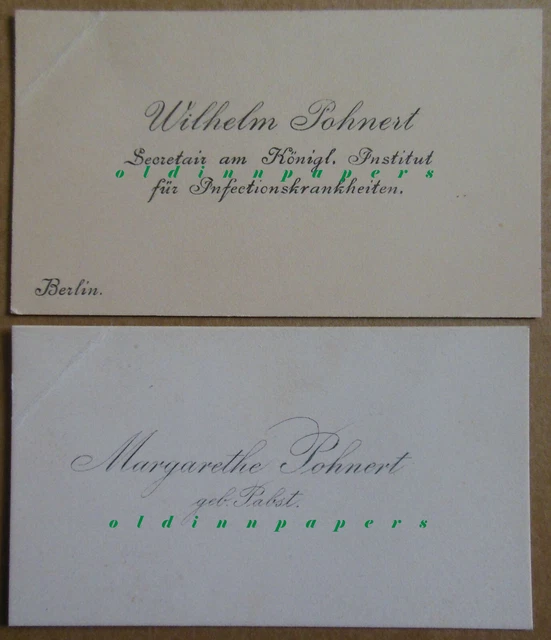 Wilhelm Pohnert
Secretair am Königl. Institut
oldinnpapers
für Infectionskrankheiten.
Berlin.
Margarethe Pohnert
geb. Pabst.
oldinnpapers